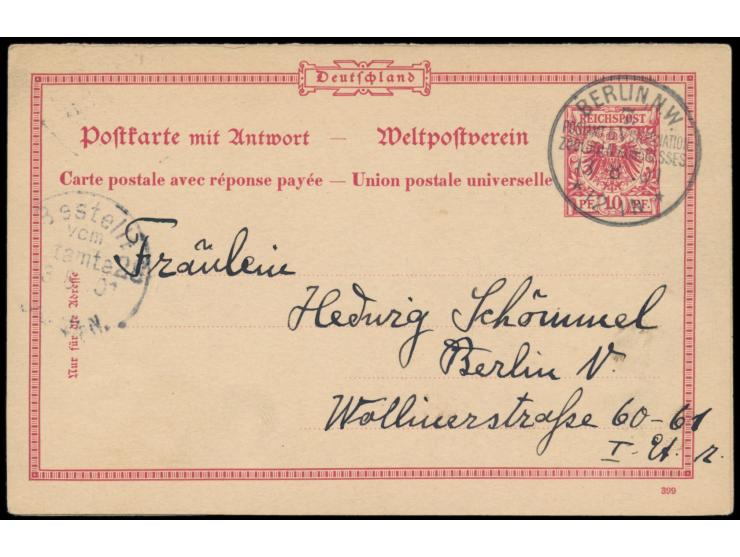 Deutschland
Postkarte mit Antwort — Weltpostverein
Carte postale avec réponse payée — Union postale universelle
REICHSPOST
PF. 10 PF.
BERLIN N.W.
5
Bestellt
vom
Nur für die Adresse
Fräulein
Hedwig Schömmel
Berlin N.
Wollinerstraße 60-61
I Et. r.
399